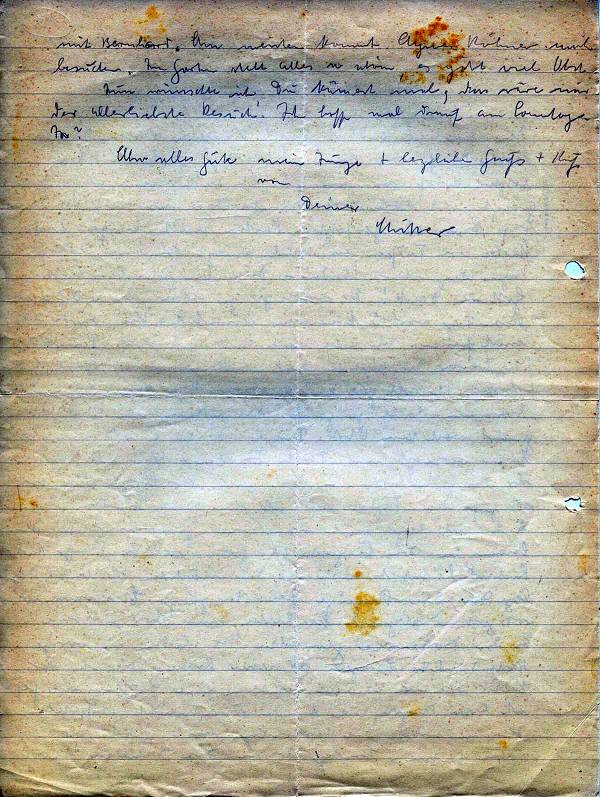 mit Bernhard. kommt Agnes mich
besuchen. Im Garten steht alles so schön es gibt viel Obst.
Nun wünschte ich Du kämest mal, das wäre mir
der allerliebste Besuch! Ich hoffe mal darauf am
alles Gute mein Junge + herzliche + Kuß
von
Deiner
Mutter